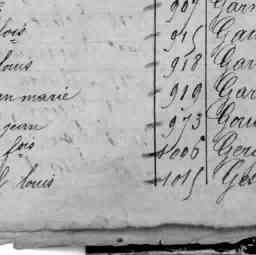 907 Gar
fois 915 Gau
louis 918 Gar
an marie 919 Gar
jean 973 Gou
fois 1006 Ger
l louis 1015 Ges